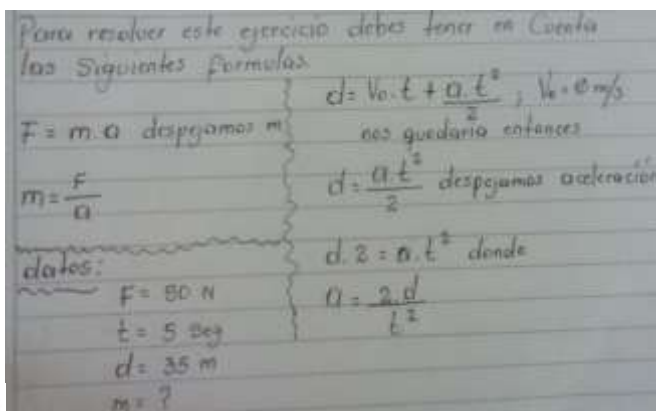 Para resolver este ejercicio debes tener en Cuenta
las Siguientes formulas
F = m.a despejamos m
m = F/a
datos:
F = 50 N
t = 5 Seg
d = 35 m
m = ?
d = Vo.t + a.t²/2 ; Vo = 0 m/s
nos quedaria entonces
d = a.t²/2 despejamos aceleración
d.2 = a.t² donde
a = 2.d/t²